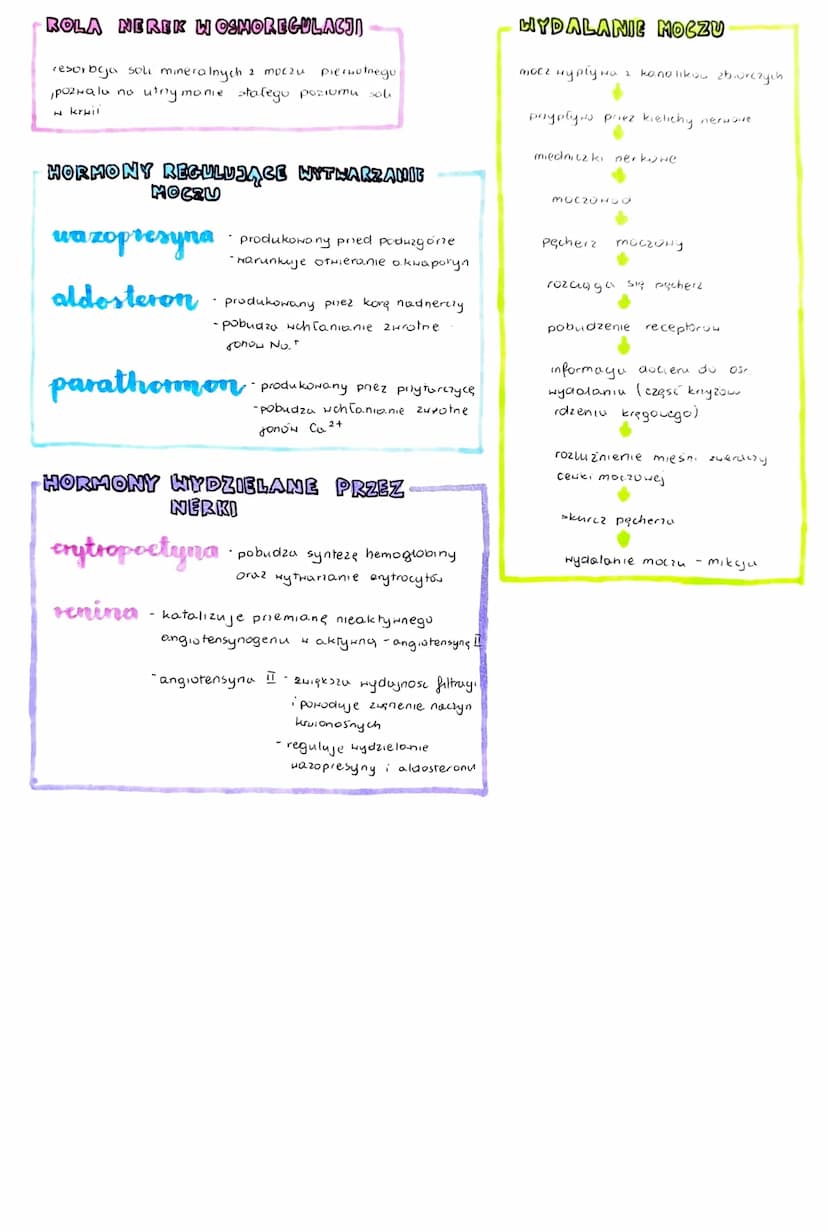 ROLA NEREK W OSMOREGULACJI
resorbcja soli mineralnych z moczu pierwotnego
, pozwala na utrzymanie stałego poziomu soli
w krwii
HORMONY REGULUJĄCE WYTWARZANIE
MOCZU
wazopresyna - produkowany przed podwzgórze
- warunkuje otwieranie akwaporyn
aldosteron - produkowany przez korę nadnerczy
- pobudza wchłanianie zwrotne
jonów Na+
parathormon - produkowany przez przytarczycę
- pobudza wchłanianie zwrotne
jonów Ca2+
HORMONY WYDZIELANE PRZEZ
NERKI
erytropoetyna - pobudza syntezę hemoglobiny
oraz wytwarzanie erytrocytów
renina - katalizuje przemianę nieaktywnego
angiotensynogenu w aktywną - angiotensynę II
- angiotensyna II - zwiększa wydajność filtracji
i powoduje zwężenie naczyń
krwionośnych
- reguluje wydzielanie
wazopresyny i aldosteronu
WYDALANIE MOCZU
mocz wypływa z kanalików zbiorczych
przypływa przez kielichy nerkowe
miedniczki nerkowe
moczowód
pęcherz moczowy
rozciąga się pęcherz
pobudzenie receptorów
informacja dociera do ośr.
wydalania (część krzyżowa
rdzenia kręgowego)
rozluźnienie mięśni zwieraczy
cewki moczowej
skurcz pęcherza
wydalanie moczu - mikcja